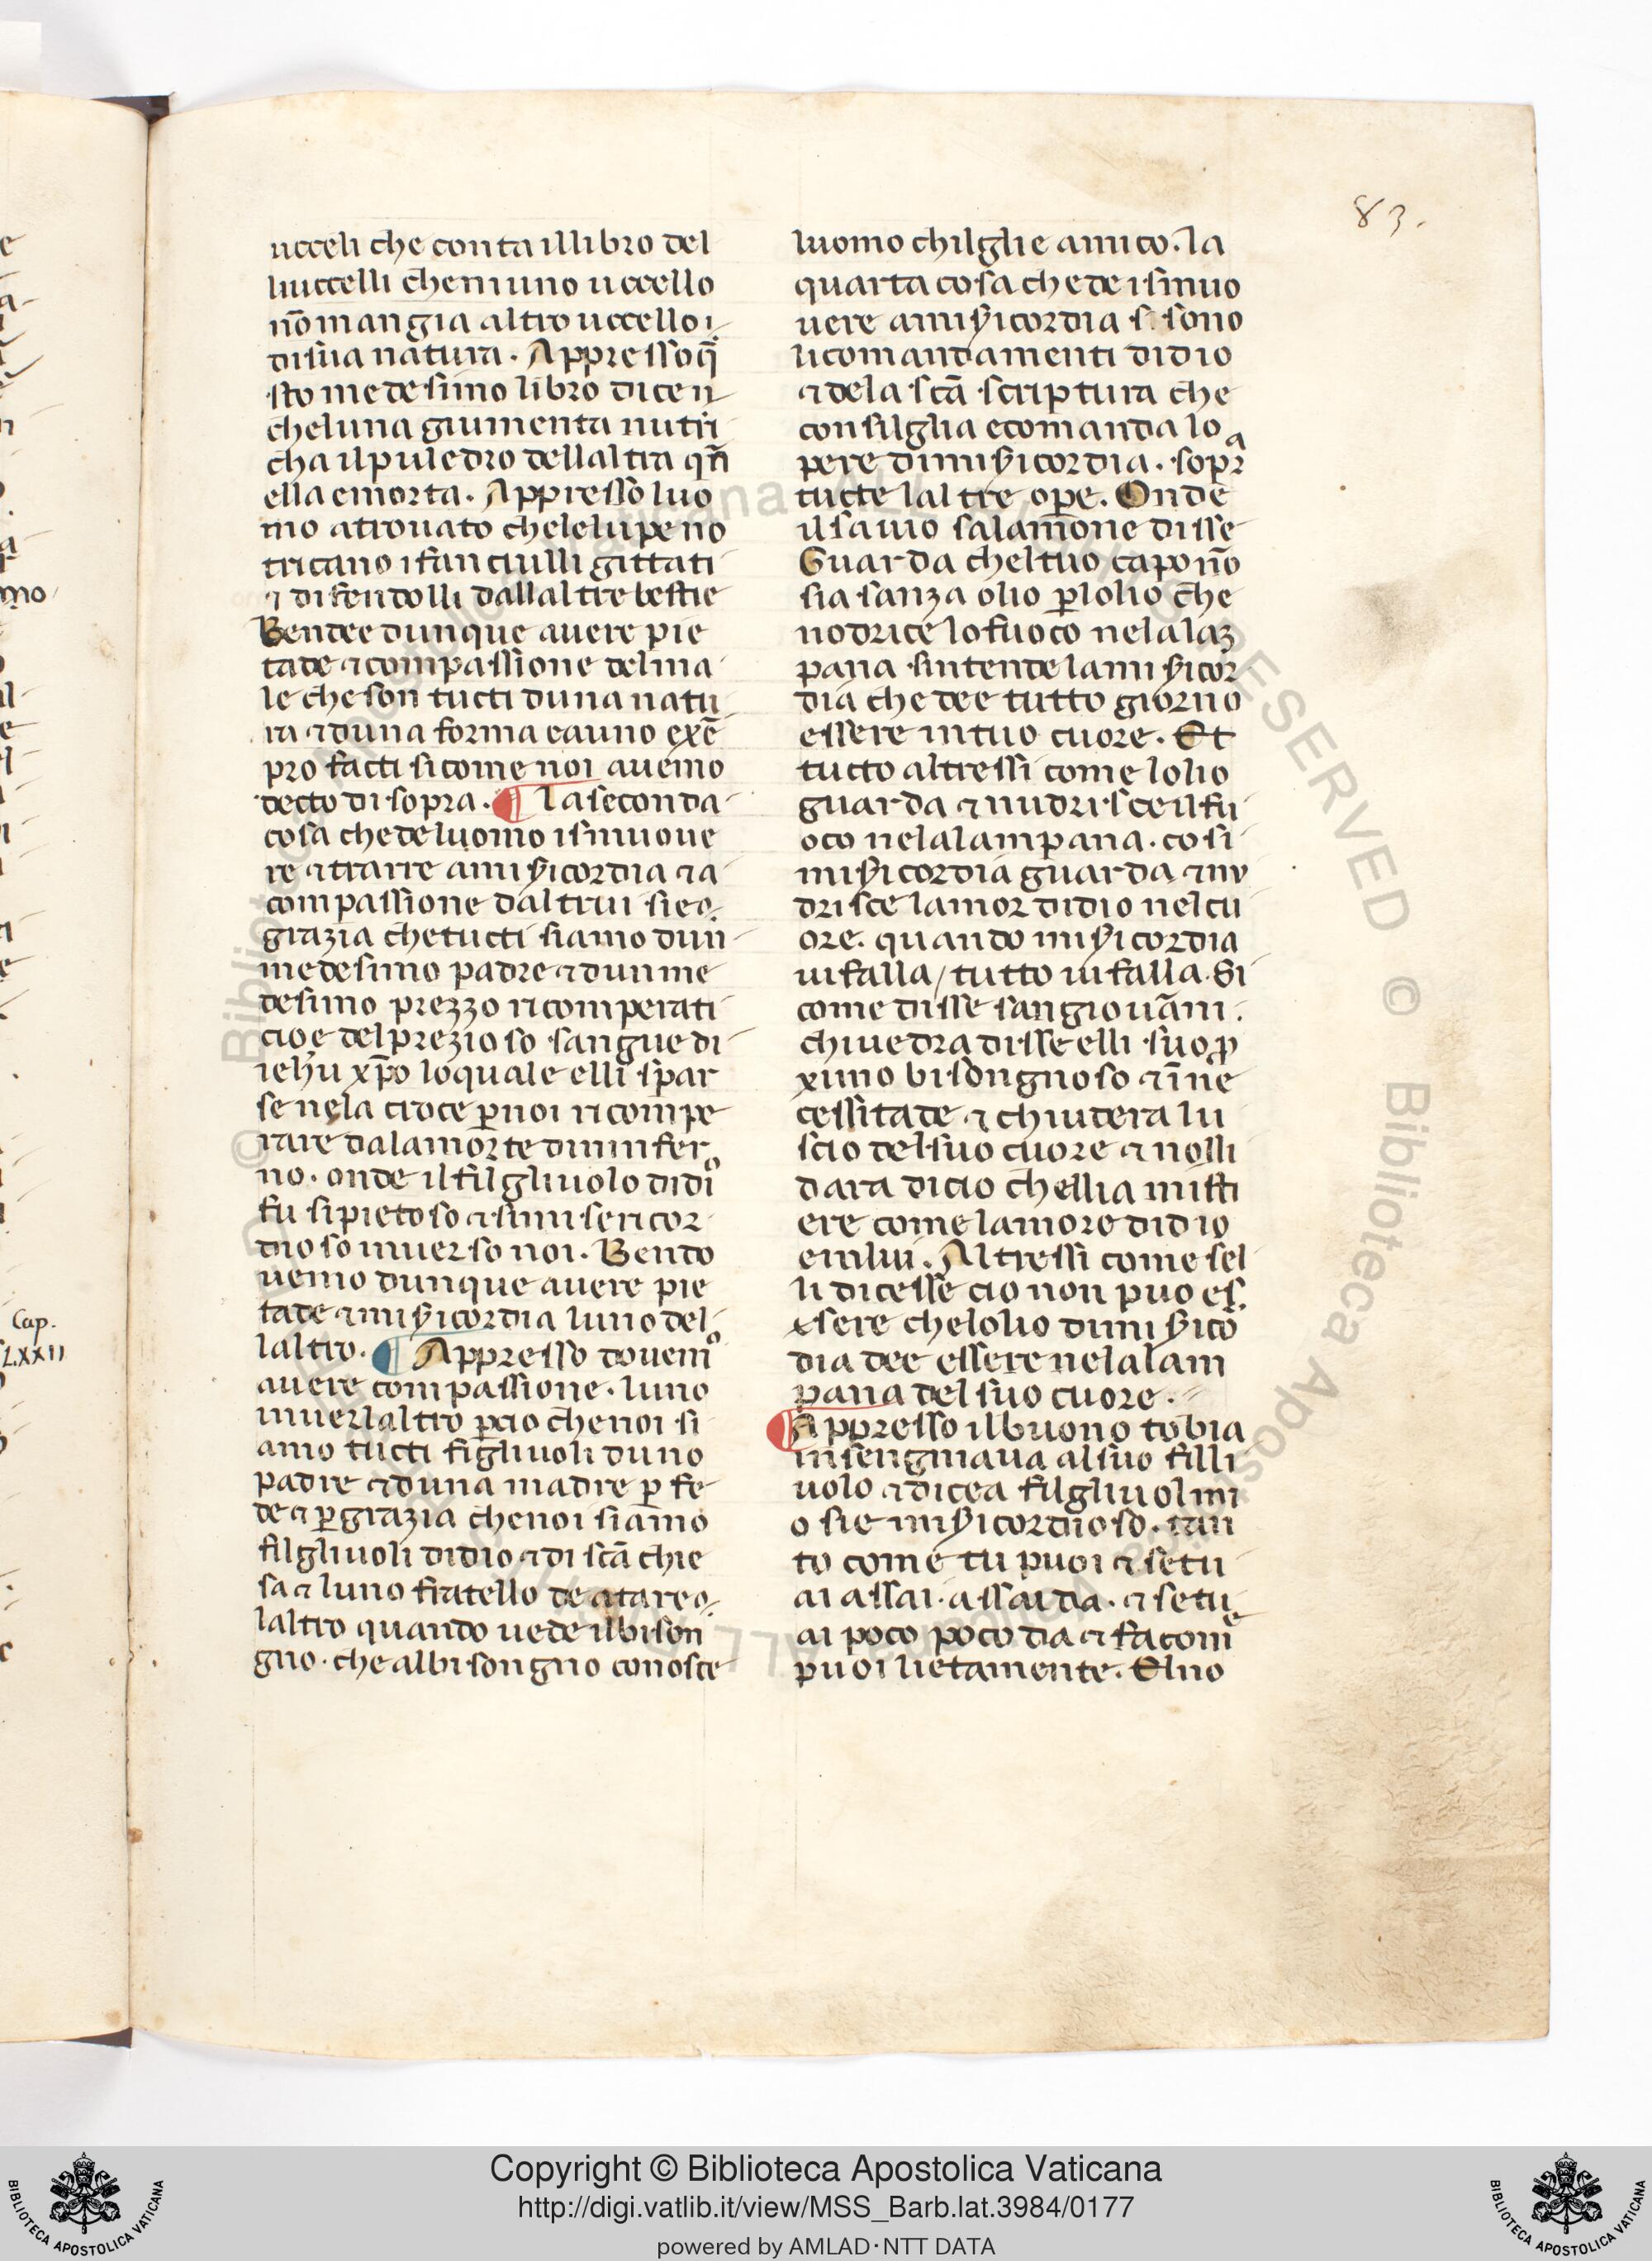 83.
ucceli che conta illibro del
luccelli cheniuno uccello
nōmangia altro uccello i
disua natura. Appresso q̄
sto medesimo libro dice in
cheluna giumenta nutri
cha ilpuledro dellaltra qn̄
ella emorta. Appresso luo
mo atrouato chelelupe no
tricano ifanciulli gittati
⁊ difendolli dallaltre bestie
Bendee dunque auere pie
tade ⁊compassione delma
le che son tucti duna natu
ra ⁊duna forma eauno exē
pro facti sicome noi auemo
decto di sopra. ¶ La seconda
cosa chedeluomo ismuoue
re ⁊trarre amisẏicordia ⁊a
compassione daltrui sie
grazia chetucti siamo dun
medesimo padre ⁊dun me
desimo prezzo ricomperati
cioe delprezioso sangue di
iehu xp̄o loquale elli spar
se nela croce ꝑnoi ricompe
rare dalamorte dininfer
no. onde il filgliuolo didio
fu sipietoso ⁊simisericor
dioso inuerso noi. Bendo
uemo dunque auere pie
tade ⁊misẏicordia luno del
laltro. ¶ Appresso douemo
auere compassione. luno
inuerlaltro ꝑcio chenoi si
amo tucti figliuoli duno
padre ⁊duna madre ꝑ fe
de ⁊ ꝑgrazia chenoi siamo
filgliuoli didio ⁊di scā chie
sa ⁊ luno fratello de atare
laltro quando uede ilbison
gno. che albisongno conosce
luomo chilglie amico. la
quarta cosa chedeismuo
uere amisẏicordia si sono
licomandamenti didio
⁊dela scā scriptura che
consilglia ecomanda lo
pere dimisẏicordia. sopra
tucte laltre ope. Onde
ilsauio salamone disse
Guarda cheltuo capo nō
sia sanza olio ꝑlolio che
nodrice lofuoco nelalaz
pana sintende lamisẏicor
dia che dee tutto giorno
essere intuo cuore. Et
tucto altressi come lolio
guarda ⁊nudrisce ilfu
oco nelalampana. cosi
misẏicordia guarda ⁊nu
drisce lamor didio nelcu
ore. quando misẏicordia
uifalla/tutto uifalla. Si
come disse sangiouāni.
chiuedra disse elli suo ꝓ
ximo bisongnoso ⁊īne
cessitade ⁊ chiudera lu
scio delsuo cuore ⁊ nolli
dara dicio chellia misti
ere come lamore didio
enlui. Altressi come sel
li dicesse cio non puo es
sere chelolio dimisẏico
dia dee essere nelalam
pana del suo cuore.
¶ Appresso ilbuono tobia
insengniaua alsuo filli
uolo ⁊dicea filgliuolmi
o sie misẏicordioso. tan
to come tu puoi ⁊ setu
ai assai. assai da. ⁊ setu
ai poco poco da ⁊ fa come
puoi lietamente. Elno
Cap.
LXXII
Copyright © Biblioteca Apostolica Vaticana
http://digi.vatlib.it/view/MSS_Barb.lat.3984/0177
powered by AMLAD·NTT DATA
BIBLIOTECA APOSTOLICA VATICANA
BIBLIOTECA APOSTOLICA VATICANA